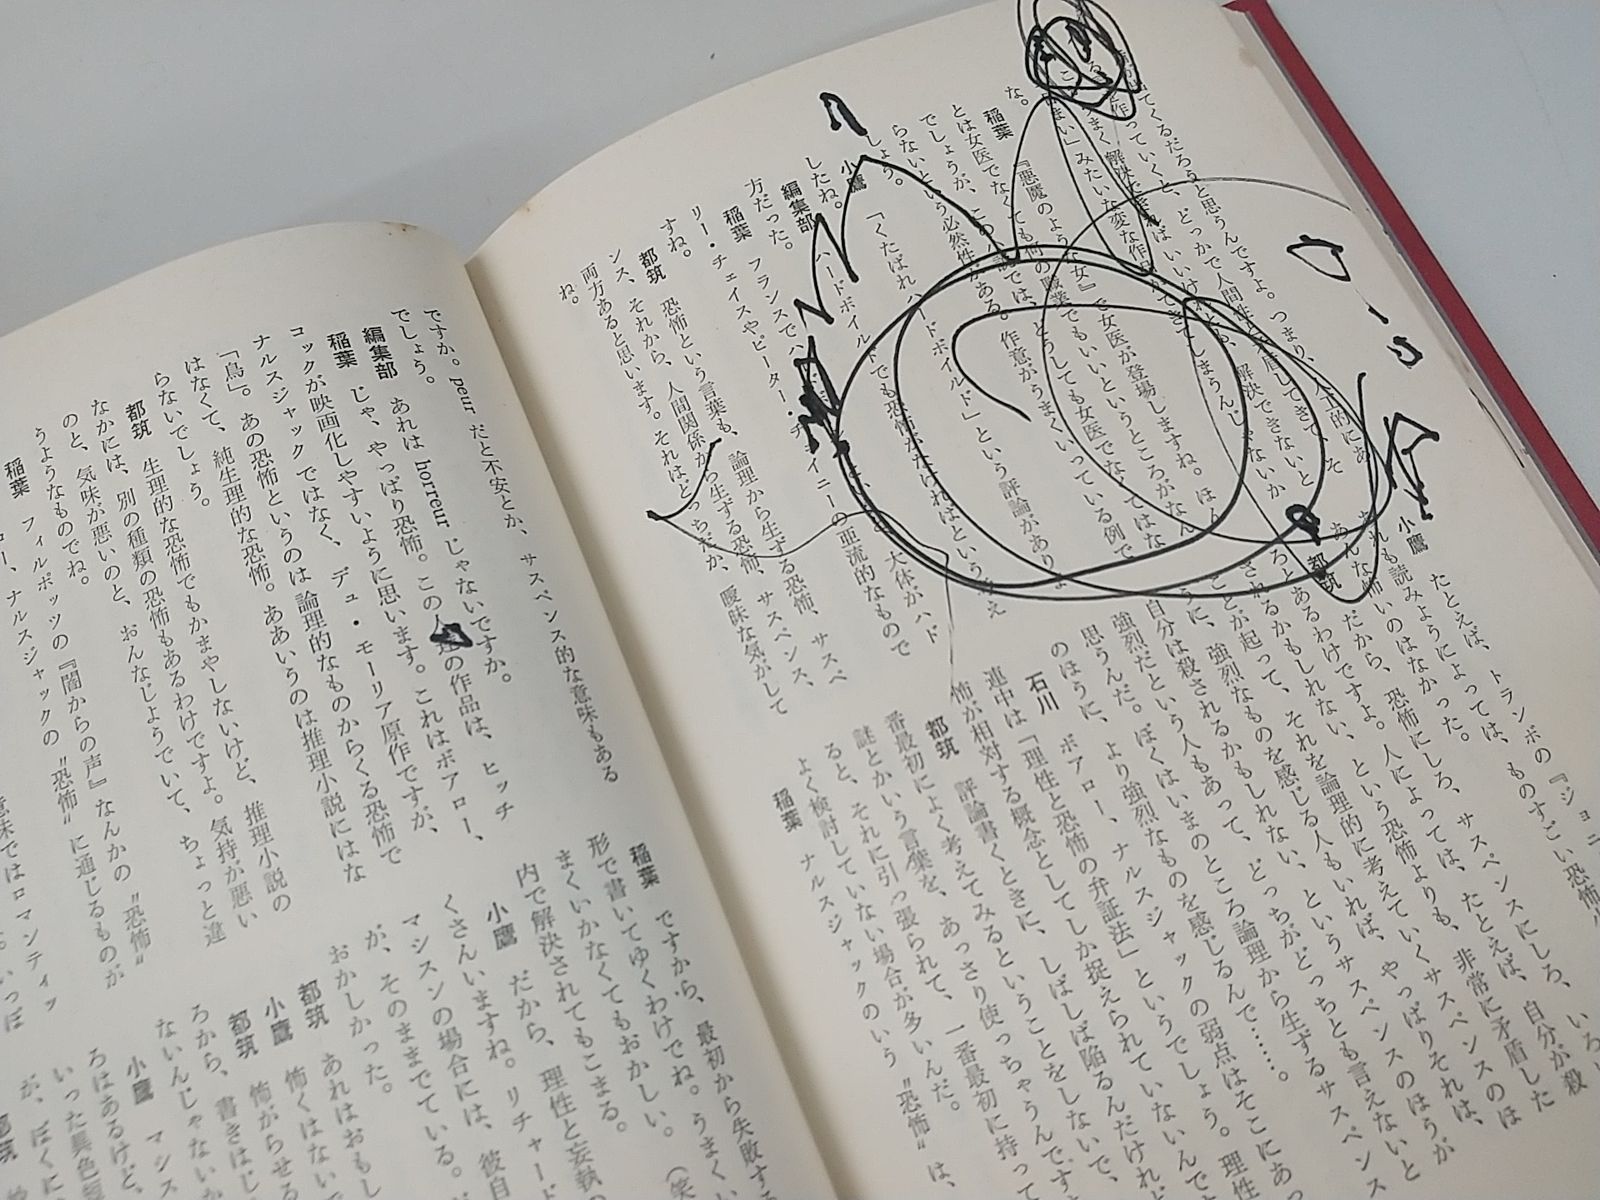 てくるだろうと思うんですよ。つまり、人工的にあ
作っていくと、どっかで人間性が矛盾してきて、そ
うまく解決できればいいけれども、解決できないか
まい」みたいな変な作品ができてしまうんじゃないか
な。
稲葉　『悪魔のような女』で女医が登場しますね。ほん
とは女医でなくても何の職業でもいいというところがなん
でしょうが、この小説では、どうしても女医でなくてはな
らないという必然性がある。作意がうまくいっている例で
しょう。
小鷹　「くたばれハードボイルド」という評論がありま
したね。
編集部　ハードボイルドでも恐怖がなければという考え
方だった。フランスでハードボイルド　大体がハド
稲葉
リー・チェイスやピーター・チェイニーの亜流的なもので
すね。
都筑　恐怖という言葉も、論理から生ずる恐怖、サスペ
ンス、それから、人間関係から生ずる恐怖、サスペンス、
両方あると思います。それはどっちだか、曖昧な気がして
ね。
小鷹　たとえば、トランボの『ジョニ
も読みようによっては、ものすごい恐怖
あんな怖いのはなかった。
都筑　だから、恐怖にしろ、サスペンスにしろ、いろ
あるわけですよ。人によっては、たとえば、自分が殺
されるかもしれない、という恐怖よりも、非常に矛盾した
ことが起って、それを論理的に考えていくサスペンスのほ
うに、強烈なものを感じる人もいれば、やっぱりそれは、
自分は殺されるかもしれない、というサスペンスのほうが
強烈だという人もあって、どっちがどっちとも言えないと
思うんだ。ぼくはいまのところ論理から生ずるサスペンス
のほうに、より強烈なものを感じるんで……。
石川　ボアロー、ナルスジャックの弱点はそこにあっ
連中は「理性と恐怖の弁証法」というでしょう。理性
怖が相対する概念としてしか捉えられていないんで
都筑　評論書くときに、しばしば陥るんだけれど
番最初によく考えてみるということをしないで、
謎とかいう言葉を、あっさり使っちゃうんです
ると、それに引っ張られて、一番最初に持って
よく検討していない場合が多いんだ。
稲葉　ナルスジャックのいう〝恐怖〟は、
ですか。peur だと不安とか、サスペンス的な意味もある
でしょう。
編集部　あれは horreur じゃないですか。
稲葉　じゃ、やっぱり恐怖。この人達の作品は、ヒッチ
コックが映画化しやすいように思います。これはボアロー、
ナルスジャックではなく、デュ・モーリア原作ですが、
「鳥」。あの恐怖というのは論理的なものからくる恐怖で
はなくて、純生理的な恐怖。ああいうのは推理小説にはな
らないでしょう。
都筑　生理的な恐怖でもかまやしないけど、推理小説の
なかには、別の種類の恐怖もあるわけですよ。気持が悪い
のと、気味が悪いのと、おんなじようでいて、ちょっと違
うようなものでね。
稲葉　フィルポッツの『闇からの声』なんかの〝恐怖〟
ロー、ナルスジャックの〝恐怖〟に通じるものが
意味ではロマンティッ
いっぽ
稲葉　ですから、最初から失敗する
形で書いてゆくわけでね。うまくい
まくいかなくてもおかしい。（笑
内で解決されてもこまる。
小鷹　だから、理性と妄執の
くさんいますね。リチャード
マシスンの場合には、彼自
が、そのままでている。
おかしかった。
都筑　あれはおもし
小鷹　怖くはないで
都筑　怖がらせる
ろから、書きはじ
ないんじゃないか
小鷹　マシス
ろはあるけど、
いった異色短
が、ぼくに
都筑